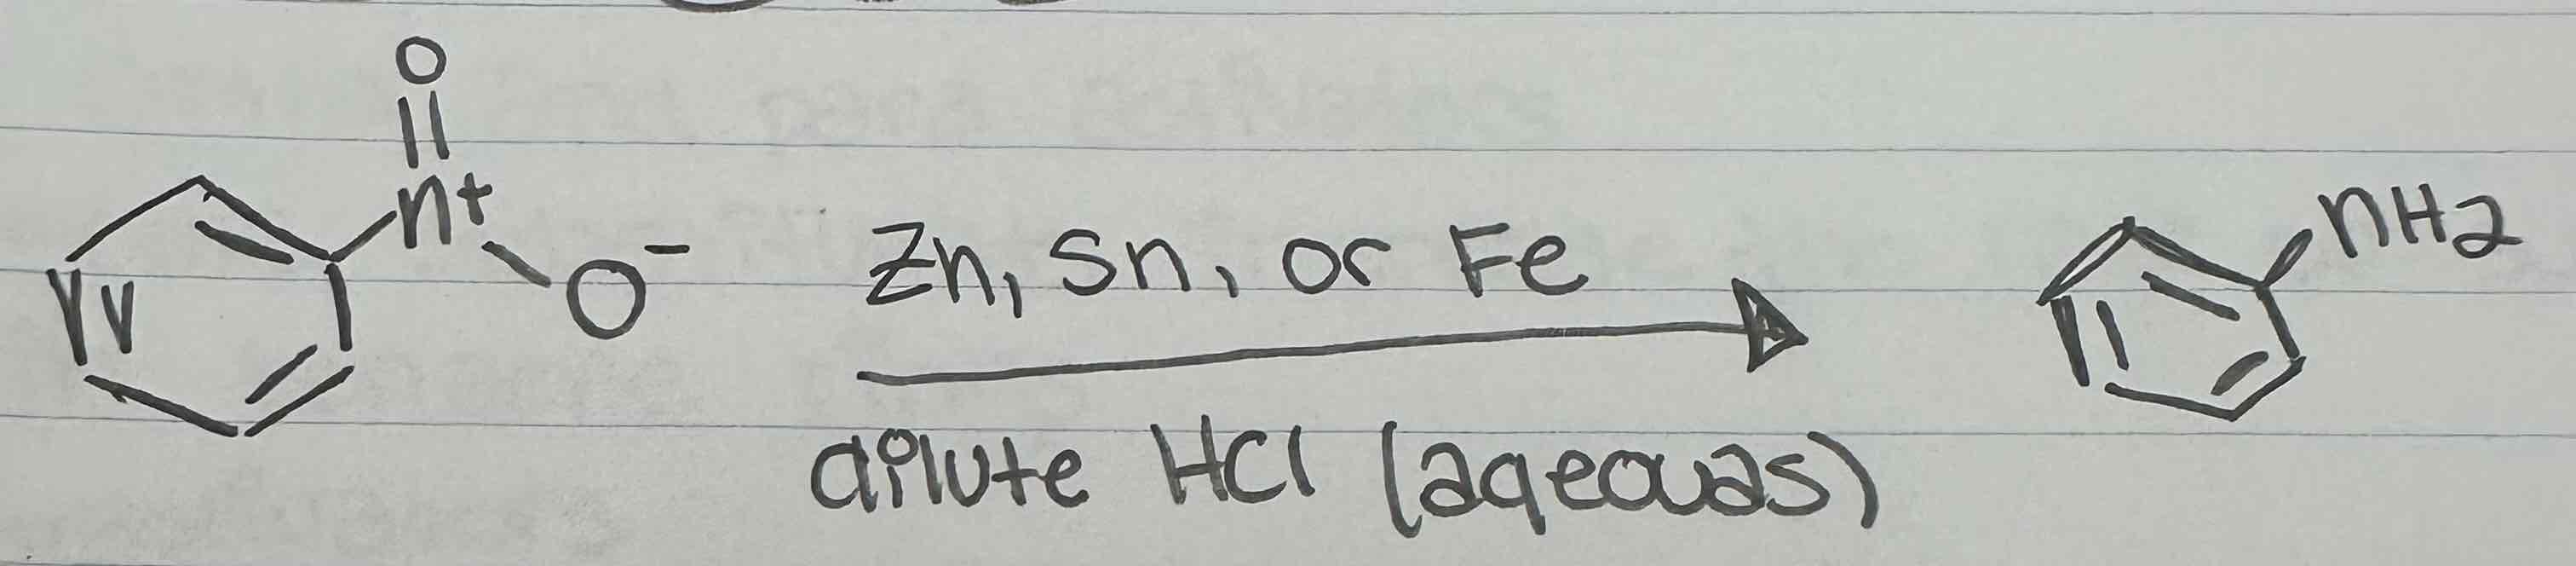 O
n+
O-
Zn, Sn, or Fe
dilute HCl (aqeouas)
nH2